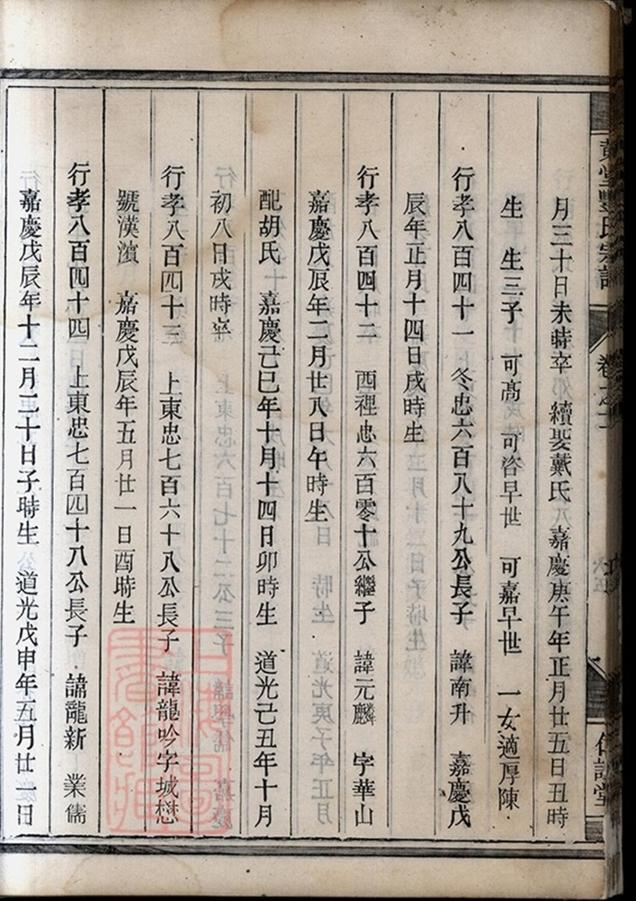 月三十日未時卒 續娶戴氏 嘉慶庚午年正月廿五日丑時
生 生三子 可髙 可咨早世 可嘉早世 一女適厚陳
行孝八百四十一 冬忠六百八十九公長子 諱南升 嘉慶戊
辰年正月十四日戌時生
行孝八百四十二 西裡忠六百零十公繼子 諱元麟 字華山
嘉慶戊辰年二月廿八日午時生
配胡氏 嘉慶己巳年十月十四日卯時生 道光己丑年十月
初八日戌時卒
行孝八百四十三 上東忠七百六十八公長子 諱龍吟字城懋
號漢濱 嘉慶戊辰年五月廿一日酉時生
行孝八百四十四 上東忠七百四十八公長子 諱龍新 業儒
嘉慶戊辰年十二月二十日子時生 道光戊申年五月廿一日